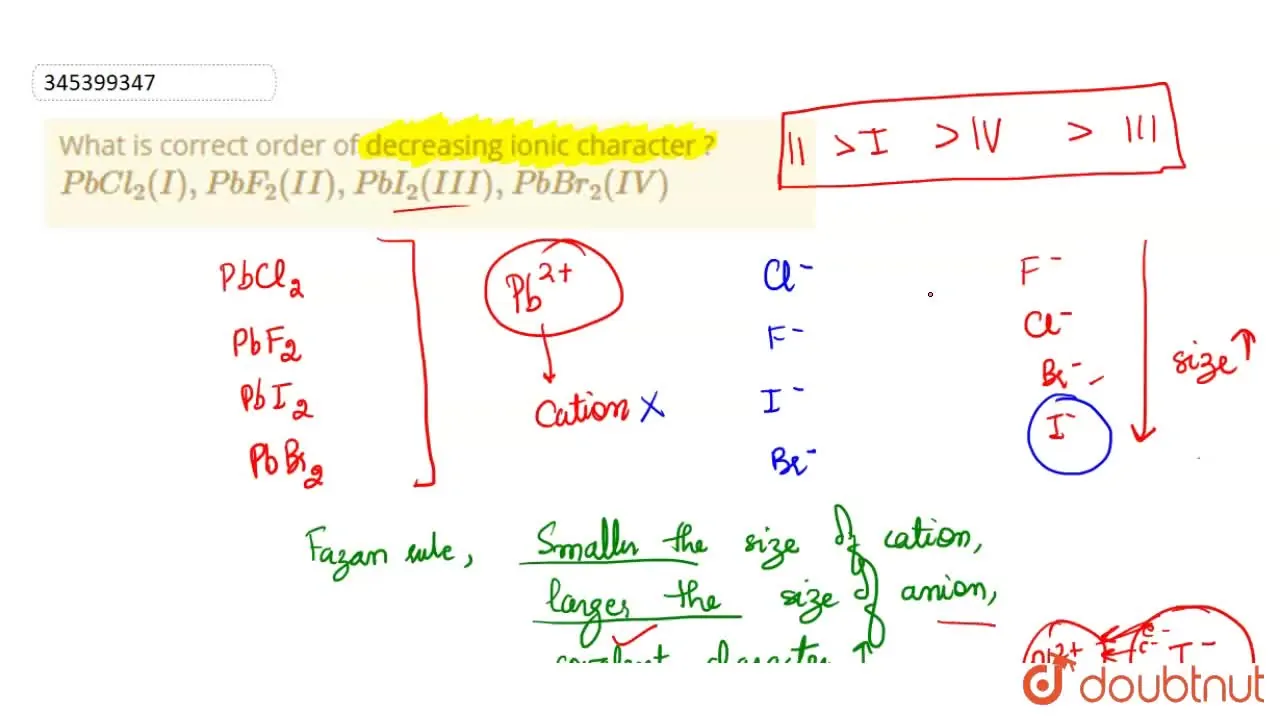 345399347
What is correct order of decreasing ionic character ?
PbCl₂(I), PbF₂(II), PbI₂(III), PbBr₂(IV)
II > I > IV > III
PbCl₂
PbF₂
PbI₂
PbBr₂
Pb²⁺
Cation X
Cl⁻
F⁻
I⁻
Br⁻
F⁻
Cl⁻
Br⁻
I⁻
size ↑
Fazan rule, Smaller the size of cation,
larger the size of anion,
covalent character ↑
e⁻
e⁻
I⁻
doubtnut